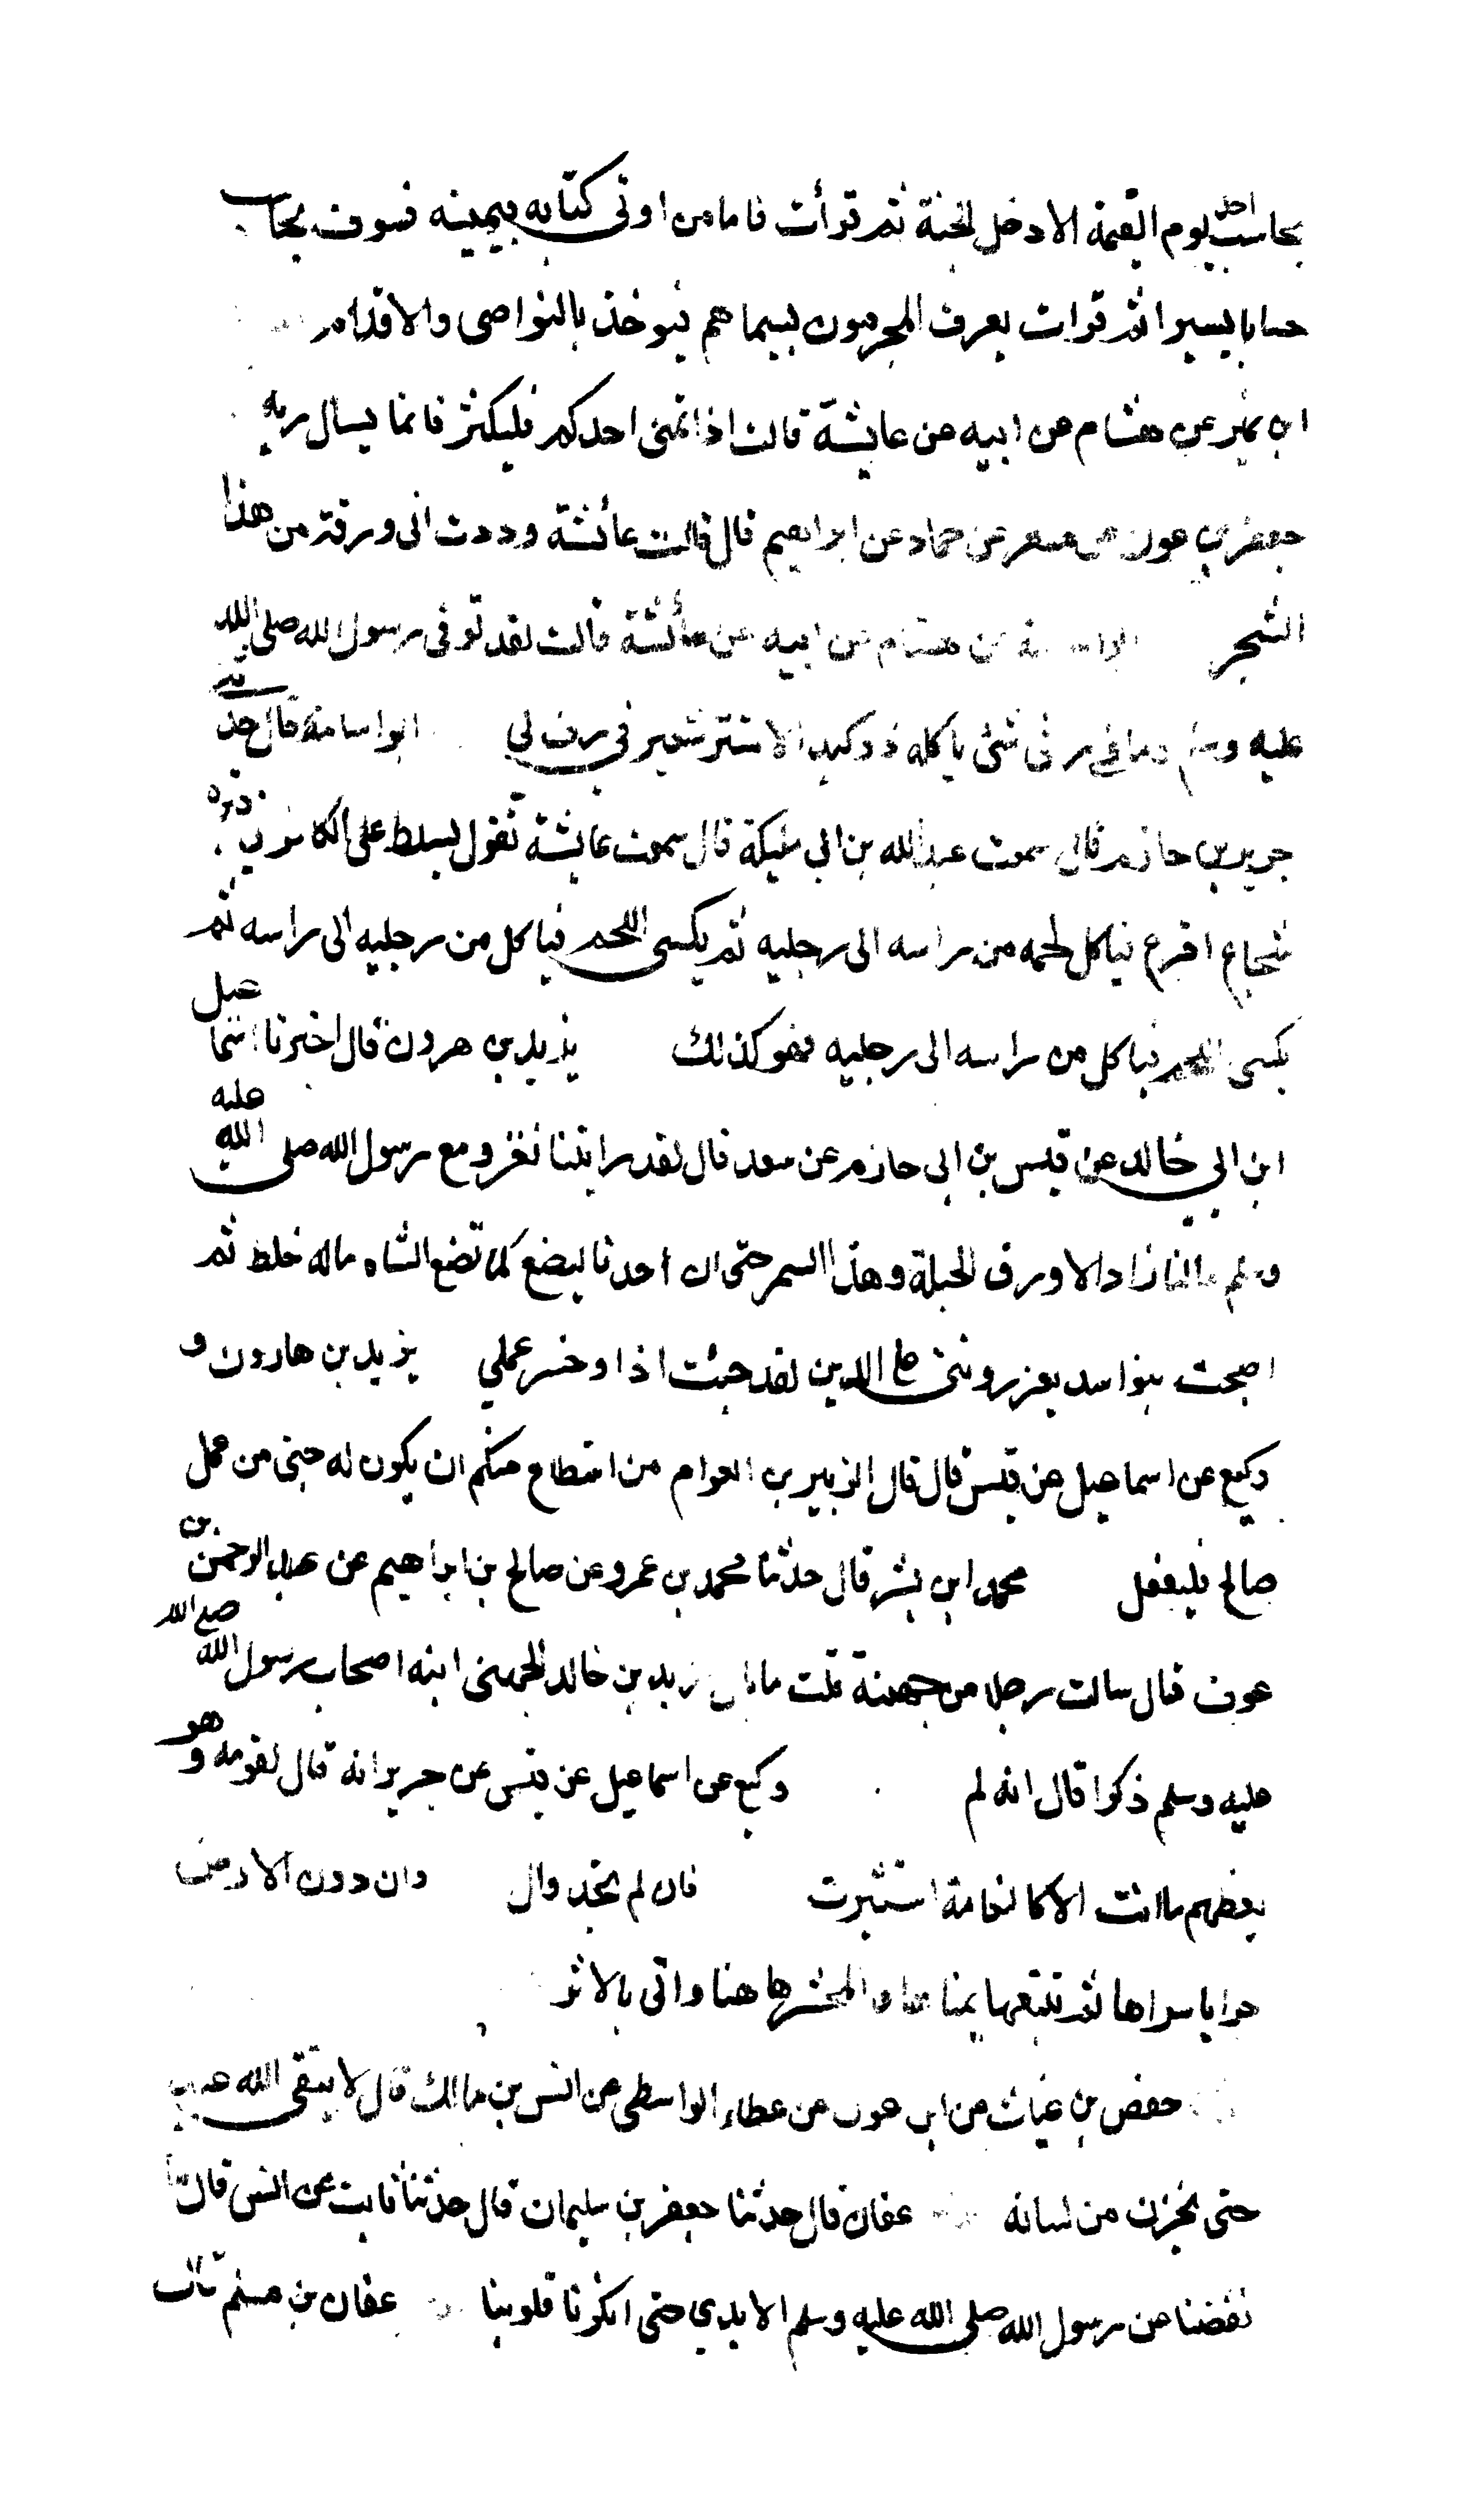 يحاسب احد يوم القيمة الا دخل الجنة ثم قرأت فاما من اوتى كتابه بيمينه فسوف يحاسب
حسابا يسيرا ثم قرات يعرف المجرمون بسيماهم فيؤخذ بالنواصى والاقدام
ابن نمير عن هشام عن ابيه عن عايشة قالت اذا تمنى احدكم فليكثر فانما يسال ربه
جعفر بن عون عن مسعر عن حماد عن ابراهيم قال قالت عائشة وددت انى ورقة من هذا
الشجر ابو اسامة عن هشام عن ابيه عن عائشة قالت لقد توفى رسول الله صلى الله
عليه وسلم وما فى رفى شئى ياكله ذو كبد الا شتر شعير فى رف لي ابو اسامة قال حدثنا
جرير بن حازم قال سمعت عبد الله بن ابي مليكة قال سمعت عايشة تقول يسلط على الكافر فى قبره
شجاع اقرع فياكل لحمه من راسه الى رجليه ثم يكسى اللحم فياكل من رجليه الى راسه ثم
يكسى اللحم فياكل من راسه الى رجليه فهو كذلك يزيد بن هرون قال اخبرنا اسماعيل
ابن ابي خالد عن قيس بن ابى حازم عن سعد قال لقد رايتنا نغزو مع رسول الله صلى الله عليه
وسلم مالنا زاد الا ورق الحبلة وهذا السمر حتى ان احدنا ليضع كما تضع الشاه ماله خلط ثم
اصبحت بنو اسد يعزروننى على الدين لقد خبت اذا وخسر عملي يزيد بن هارون و
وكيع عن اسماعيل عن قيس قال قال الزبير بن العوام من استطاع منكم ان يكون له خبئ من عمل
صالح فليفعل محمد ابن بشر قال حدثنا محمد بن عمرو عن صالح بن ابراهيم عن عبد الرحمن بن
عوف قال سالت رجلا من جهينة قلت زيد بن خالد الجهنى ابنه اصحاب رسول الله صلى الله
عليه وسلم ذكرا قال انه لم وكيع عن اسماعيل عن قيس عن جرير انه قال لقومه وهو
يعظهم ما انت الا كالنعامة استترت فان لم تجد وال وان دون الارض
حرايا سراها ثم تتبعها يمنا والمحشر هاهنا واتى بالاثر
حفص بن غياث عن ابن عون عن عطاء الواسطى عن انس بن مالك قال لا يتقى الله عبد
حتى يخزن من لسانه عفان قال حدثنا جعفر بن سليمان قال حدثنا ثابت عن انس قال ما
نفضنا عن رسول الله صلى الله عليه وسلم الايدي حتى انكرنا قلوبنا عفان بن مسلم قال